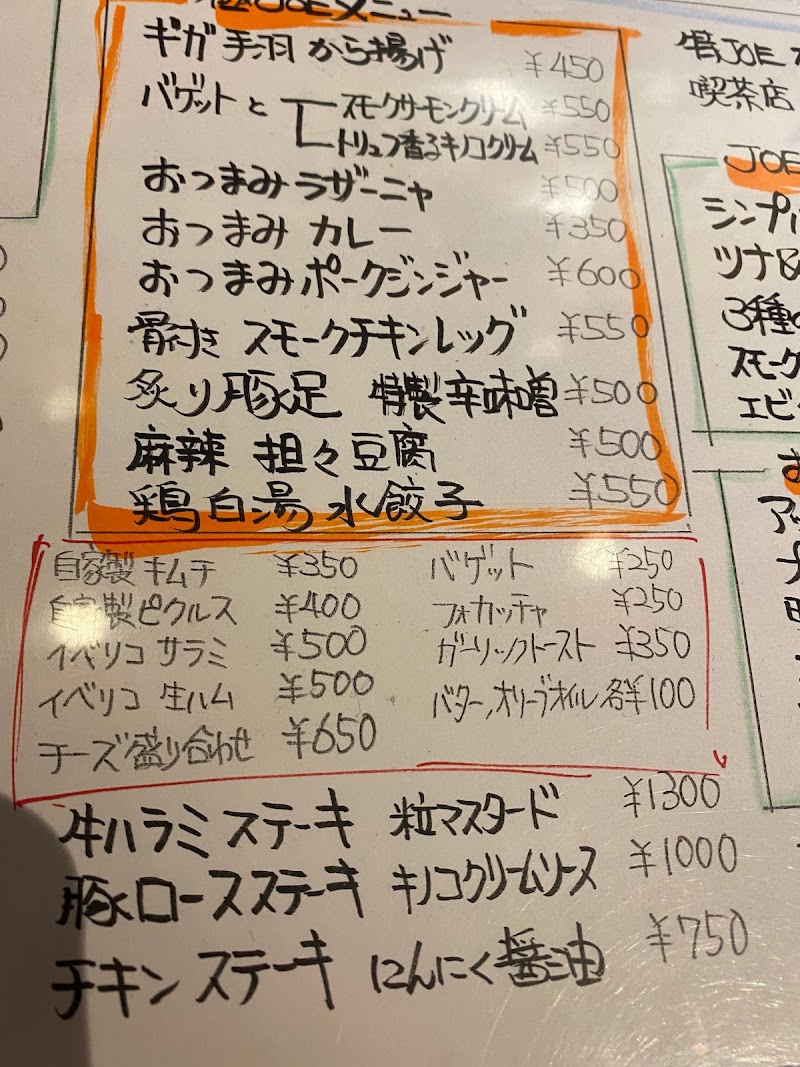 JOEメニュー
ギガ手羽から揚げ ¥450
バゲットと スモークサーモンクリーム ¥550
トリュフ香るキノコクリーム ¥550
おつまみラザーニャ ¥500
おつまみ カレー ¥350
おつまみポークジンジャー ¥600
骨付き スモークチキンレッグ ¥550
炙り豚足 特製辛味噌 ¥500
麻辣 担々豆腐 ¥500
鶏白湯 水餃子 ¥550
自家製 キムチ ¥350
自家製ピクルス ¥400
イベリコ サラミ ¥500
イベリコ 生ハム ¥500
チーズ盛り合わせ ¥650
バゲット ¥250
フォカッチャ ¥250
ガーリックトースト ¥350
バター,オリーブオイル 各¥100
牛ハラミステーキ 粒マスタード ¥1300
豚ロースステーキ キノコクリームソース ¥1000
チキンステーキ にんにく醤油 ¥750
JOE
喫茶店
JOE
シンプル
ツナ&
3種の
スモーク
エビ